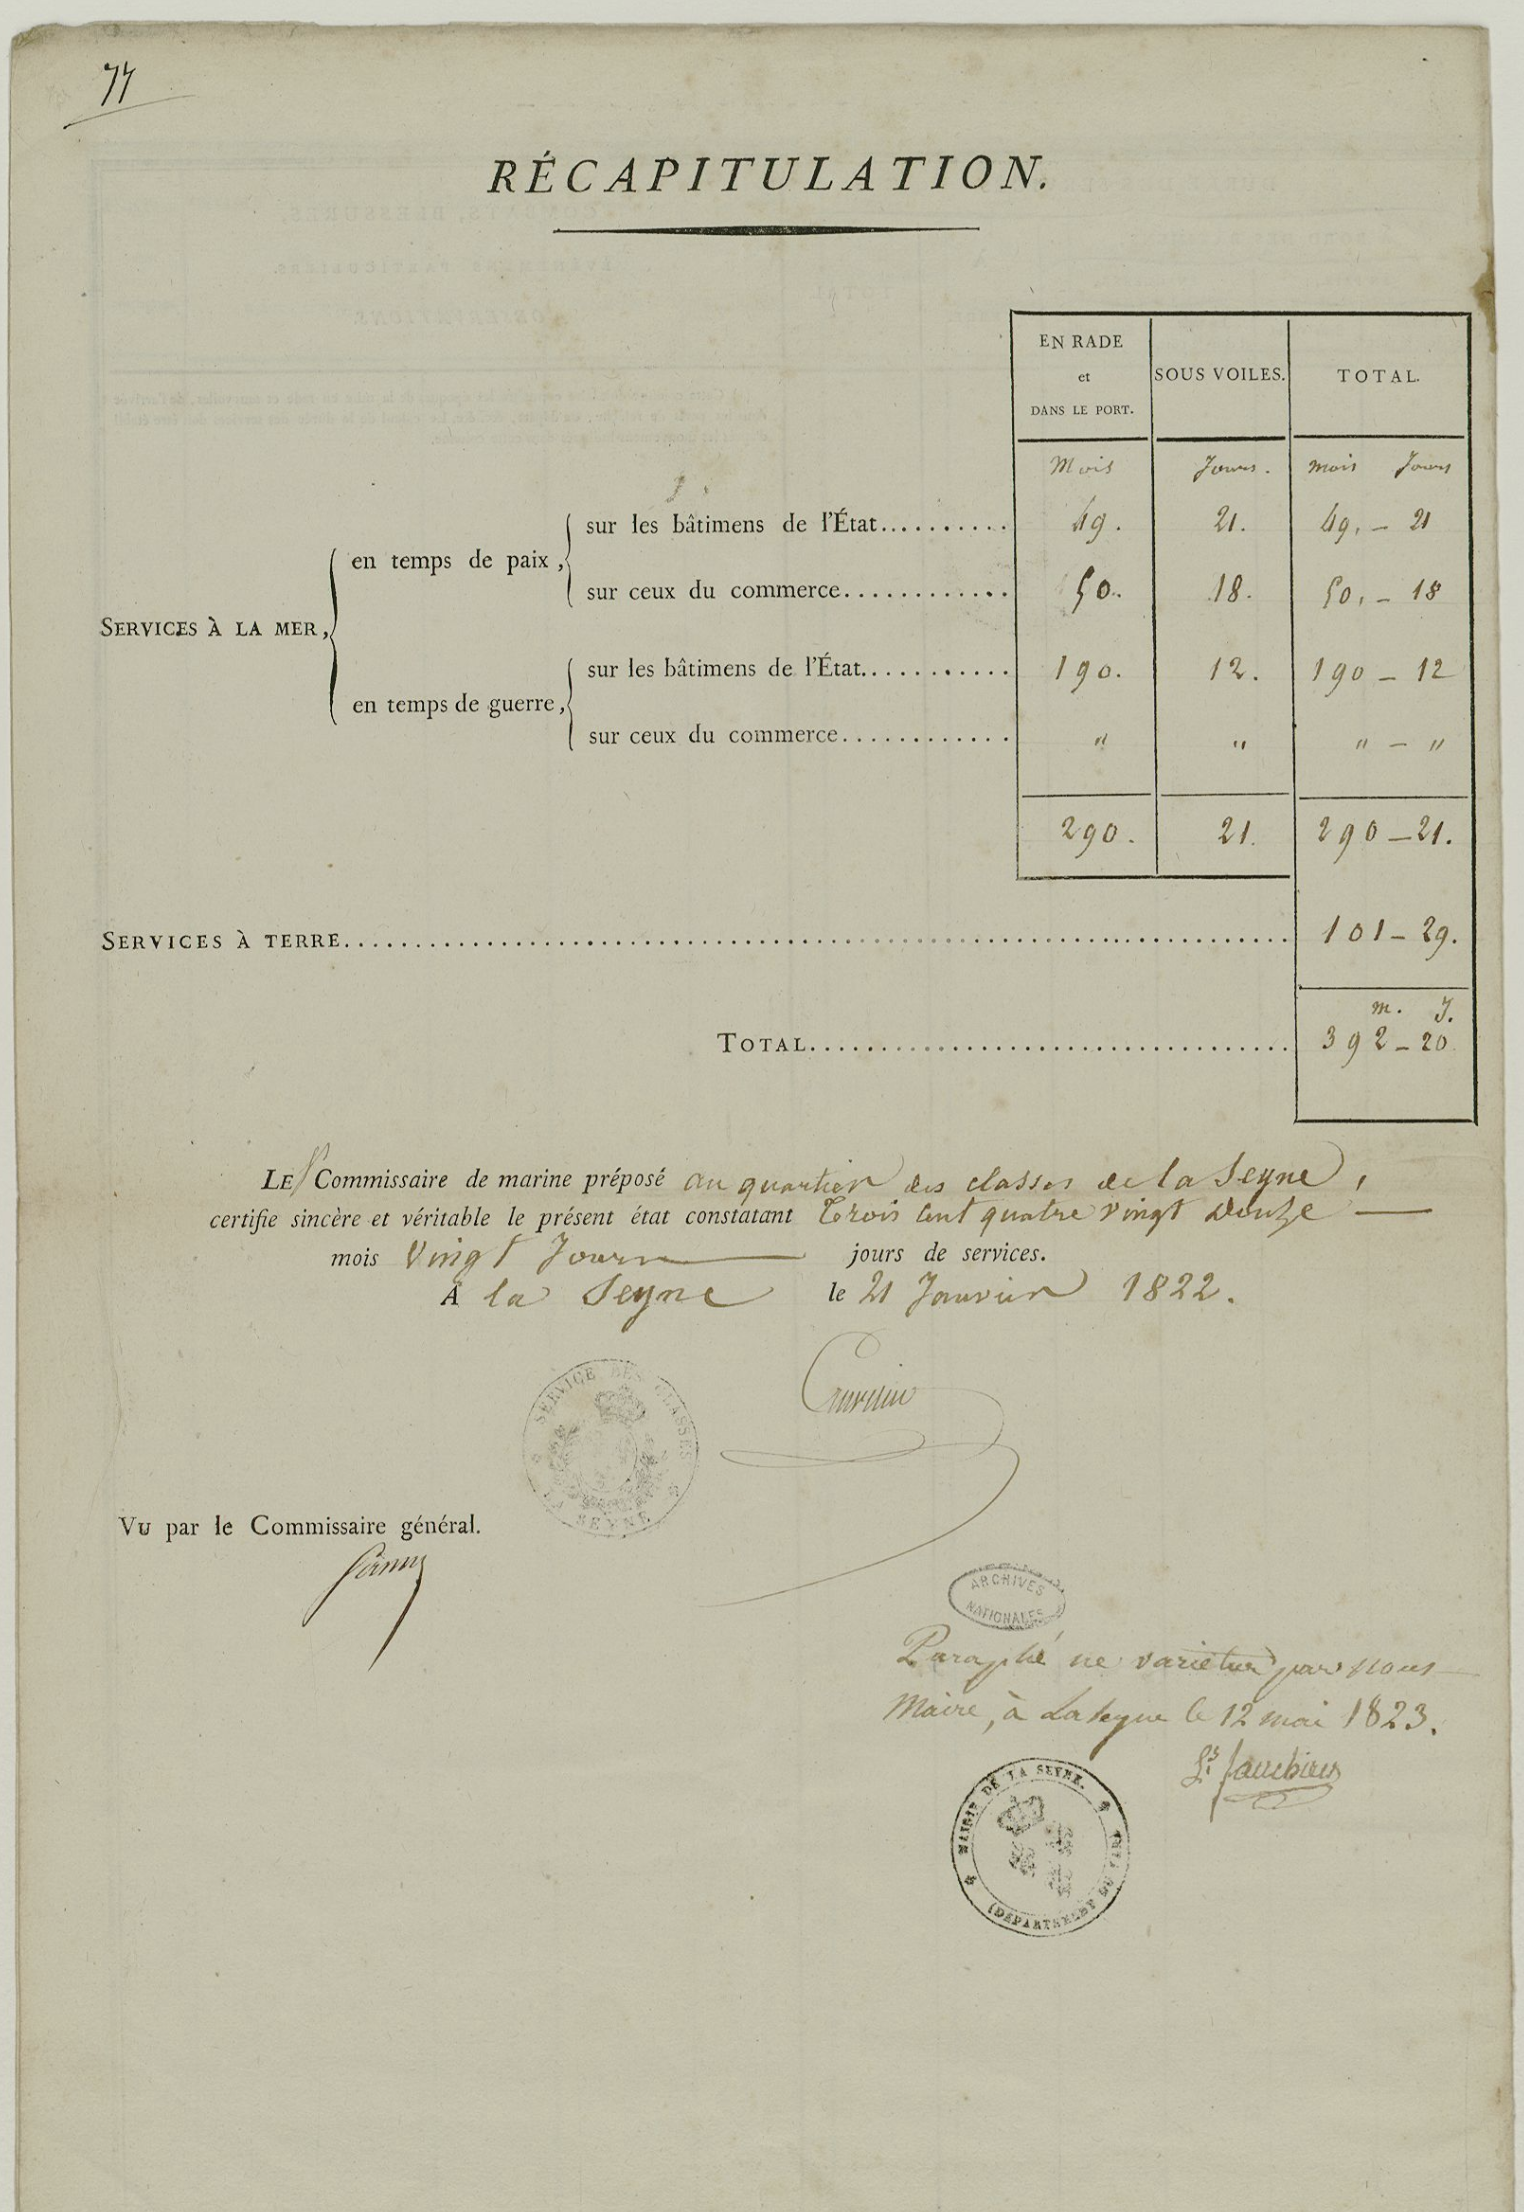 77
RÉCAPITULATION.
EN RADE
et
DANS LE PORT.
SOUS VOILES.
TOTAL.
Mois Jours. mois Jours
SERVICES À LA MER,
en temps de paix,
sur les bâtimens de l'État.......... 49. 21. 49. - 21
sur ceux du commerce............ 50. 18. 50. - 18
en temps de guerre,
sur les bâtimens de l'État............ 190. 12. 190 - 12
sur ceux du commerce............ " " " - "
290. 21. 290 - 21.
SERVICES À TERRE.................... 101 - 29.
m. J.
TOTAL.................... 392 - 20
LE Commissaire de marine préposé au quartier des classes de la Seyne,
certifie sincère et véritable le présent état constatant Trois cent quatre vingt Douze
mois Vingt Jours jours de services.
A la Seyne le 21 Janvier 1822.
SERVICE DES CLASSES
SEYNE
Vu par le Commissaire général.
ARCHIVES
NATIONALES
Paraphé ne varietur par nous
Maire, à Laseyne le 12 mai 1823.
MAIRIE DE LA SEYNE.
(DÉPARTEMENT DU VAR)